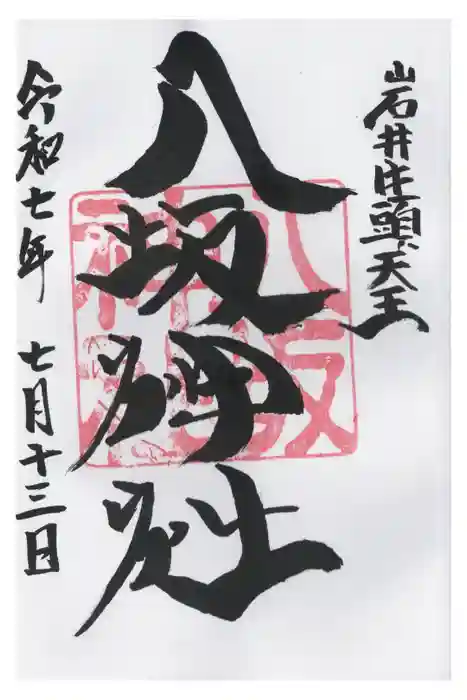 岩井牛頭天王
八坂神社
八坂
神社
令和七年 七月十三日